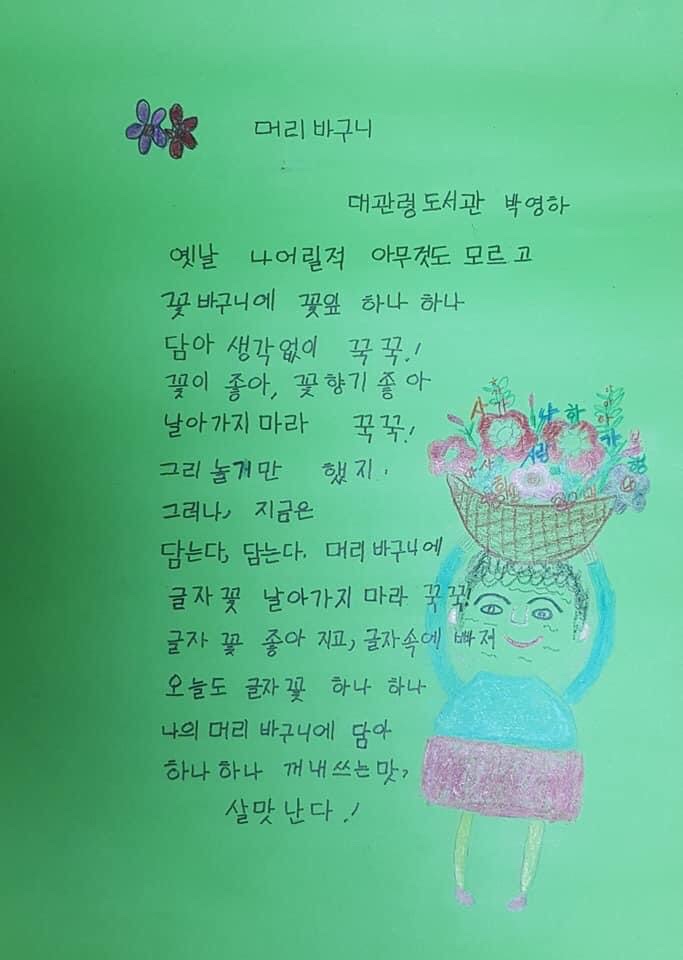 머리 바구니
대관령 도서관 박영하
옛날 나어릴적 아무것도 모르고
꽃바구니에 꽃잎 하나 하나
담아 생각없이 꾹꾹!
꽃이 좋아, 꽃향기 좋아
날아가지 마라 꾹꾹!
그리 눌게만 했지.
그러나, 지금은
담는다, 담는다. 머리 바구니에
글자 꽃 날아가지 마라 꾹꾹!
글자 꽃 좋아 지고, 글자속에 빠져
오늘도 글자 꽃 하나 하나
나의 머리 바구니에 담아
하나 하나 꺼내쓰는맛,
살맛 난다!
사랑